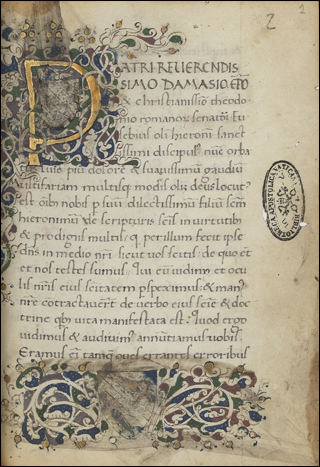 2
1
PATRI REVERENDIS
SIMO DAMASIO EPO
& christianissio theodo
nio romanor senatori Eu
sebius oli hieronimi sanct
issimi discipulus nuc orba
tus luis piu dolore & suavissimum gaudiu
multifariam multisq modis olim deus locut
est oib nobis p suu dilectissimum filiu sem
hieronimu de scripturis scis in virtutib
& prodigiis multis q per illum fecit ipse
dns in medio nri sicut vos scitis de quo et
et nos testes sumus Qui eu vidim et ocu
lis nris eius scitatem pspeximus & man
nre contractaverut de verbo eius scie & doc
trine qb vita manifestata est Quod ergo
vidimus & audivim annutiamus vobis
Eramus eni tanq oves errantes erroribus
BIBLIOTHECA APOSTOLICA VATICANA